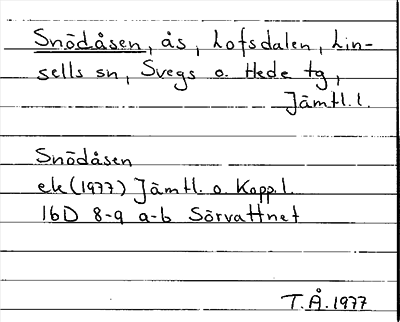 Snödåsen, ås, Lofsdalen, Lin-
sells sn, Svegs o. Hede tg,
Jämtl.l.
Snödåsen
ek(1977) Jämtl. o. Kopp.l.
16D 8-9 a-b Sörvattnet
T.Å.1977